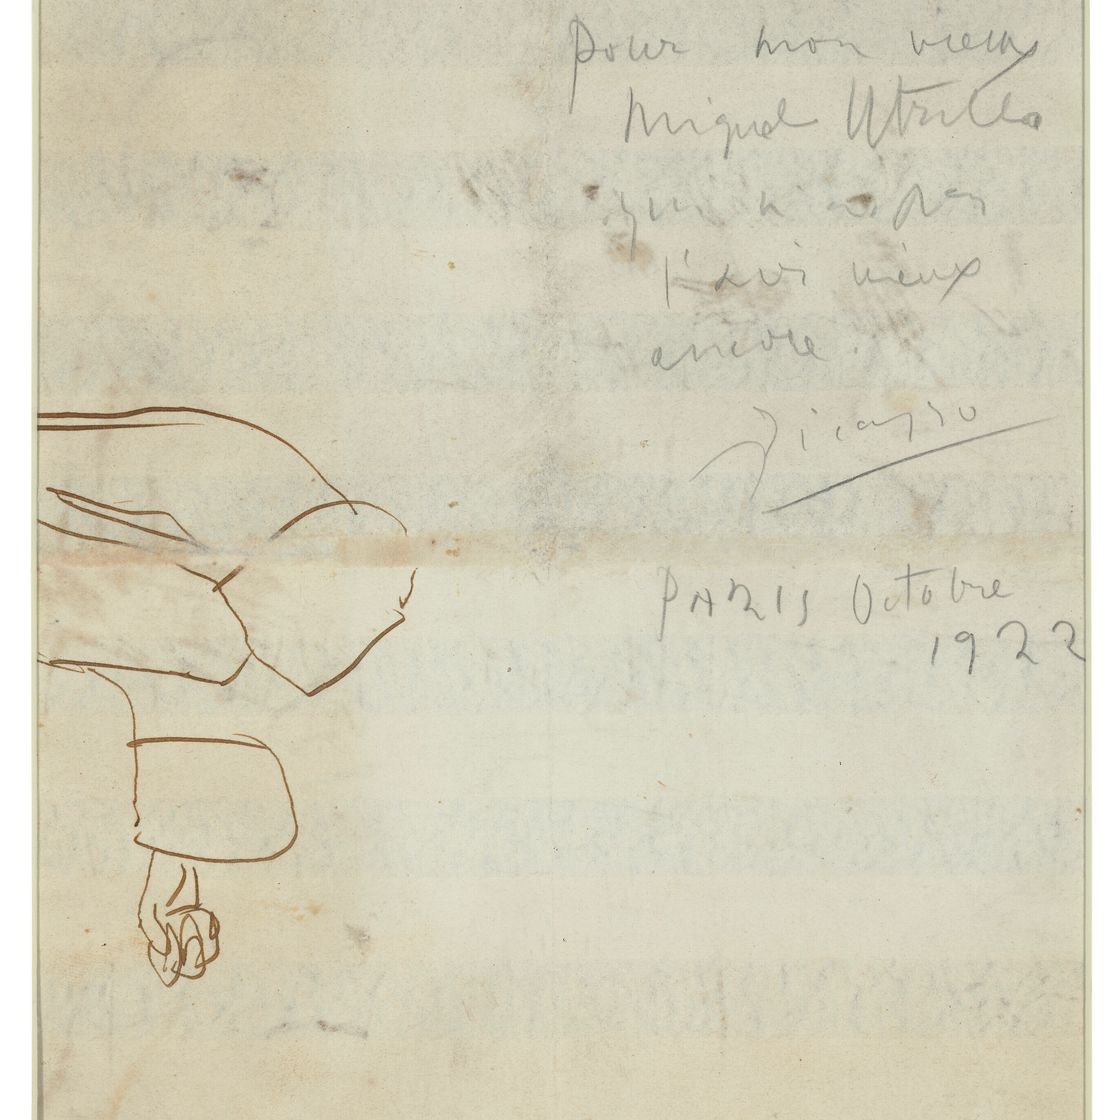 pour mon vieux
Miquel Utrillo
qui n a pas
vieux
encore.
Picasso
PARIS Octobre
1922